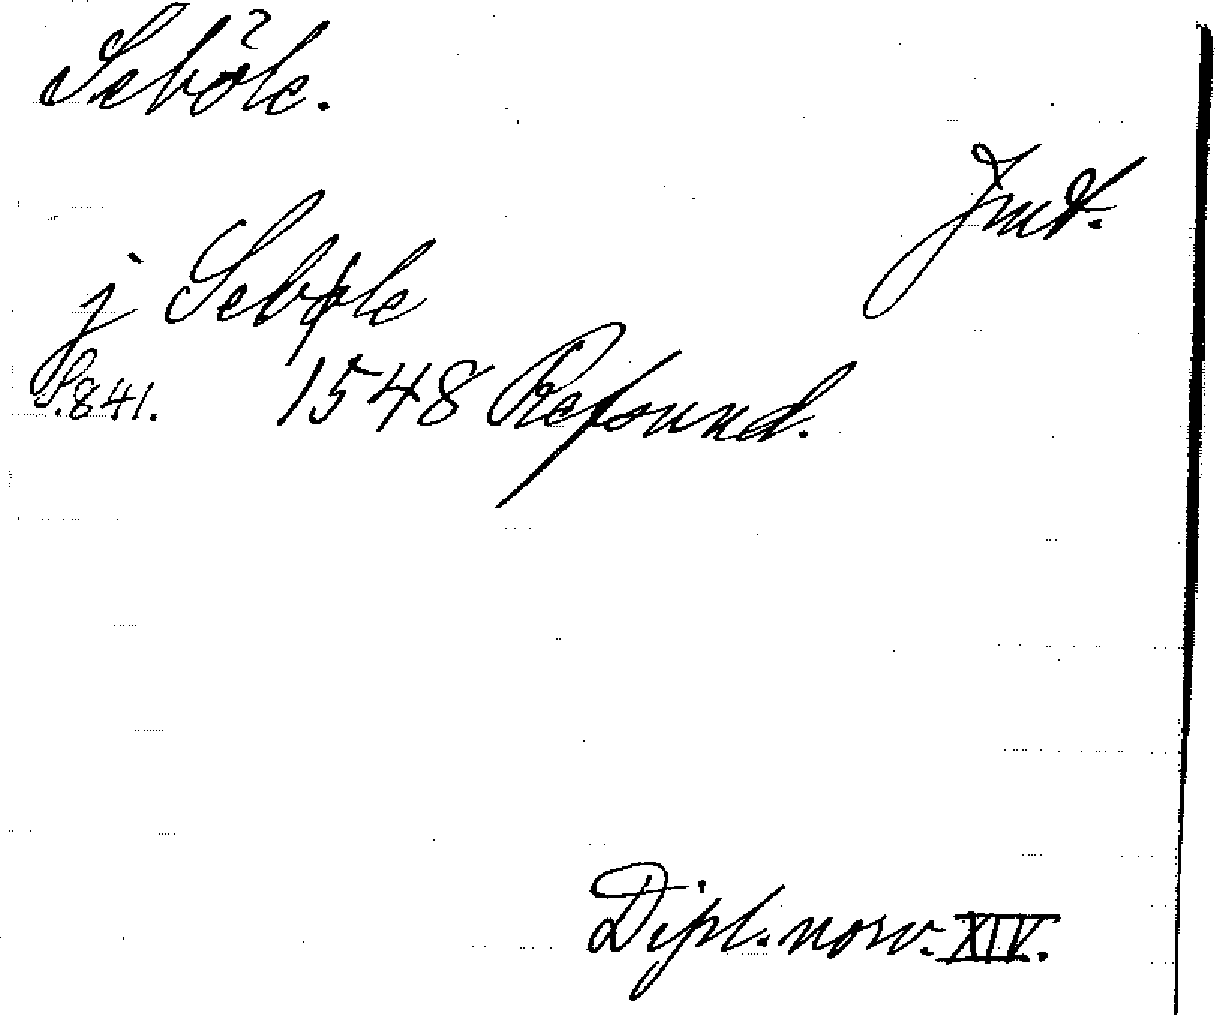 Seböle.
Jmt.
j Sebøle
S.841. 1548 Refsund.
Dipl. norv. XIV.